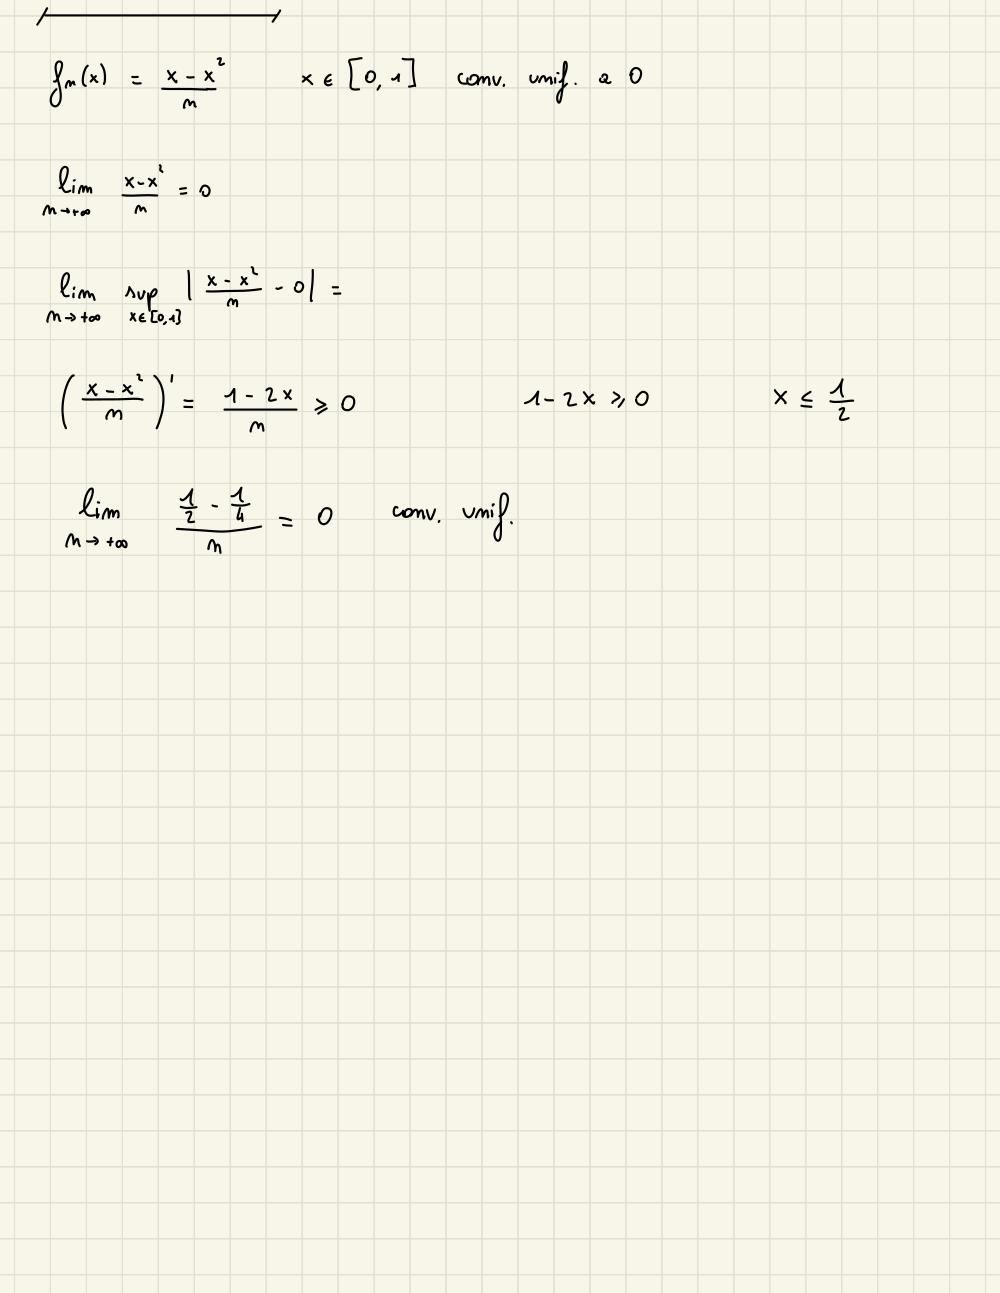 fₙ(x) = (x - x²)/n x ∈ [0, 1] conv. unif. a 0
lim n→+∞ (x-x²)/n = 0
lim n→+∞ sup x∈[0,1] | (x - x²)/n - 0 | =
((x - x²)/n)' = (1 - 2x)/n ⩾ 0 1 - 2x ⩾ 0 x ≤ 1/2
lim n→+∞ (1/2 - 1/4)/n = 0 conv. unif.